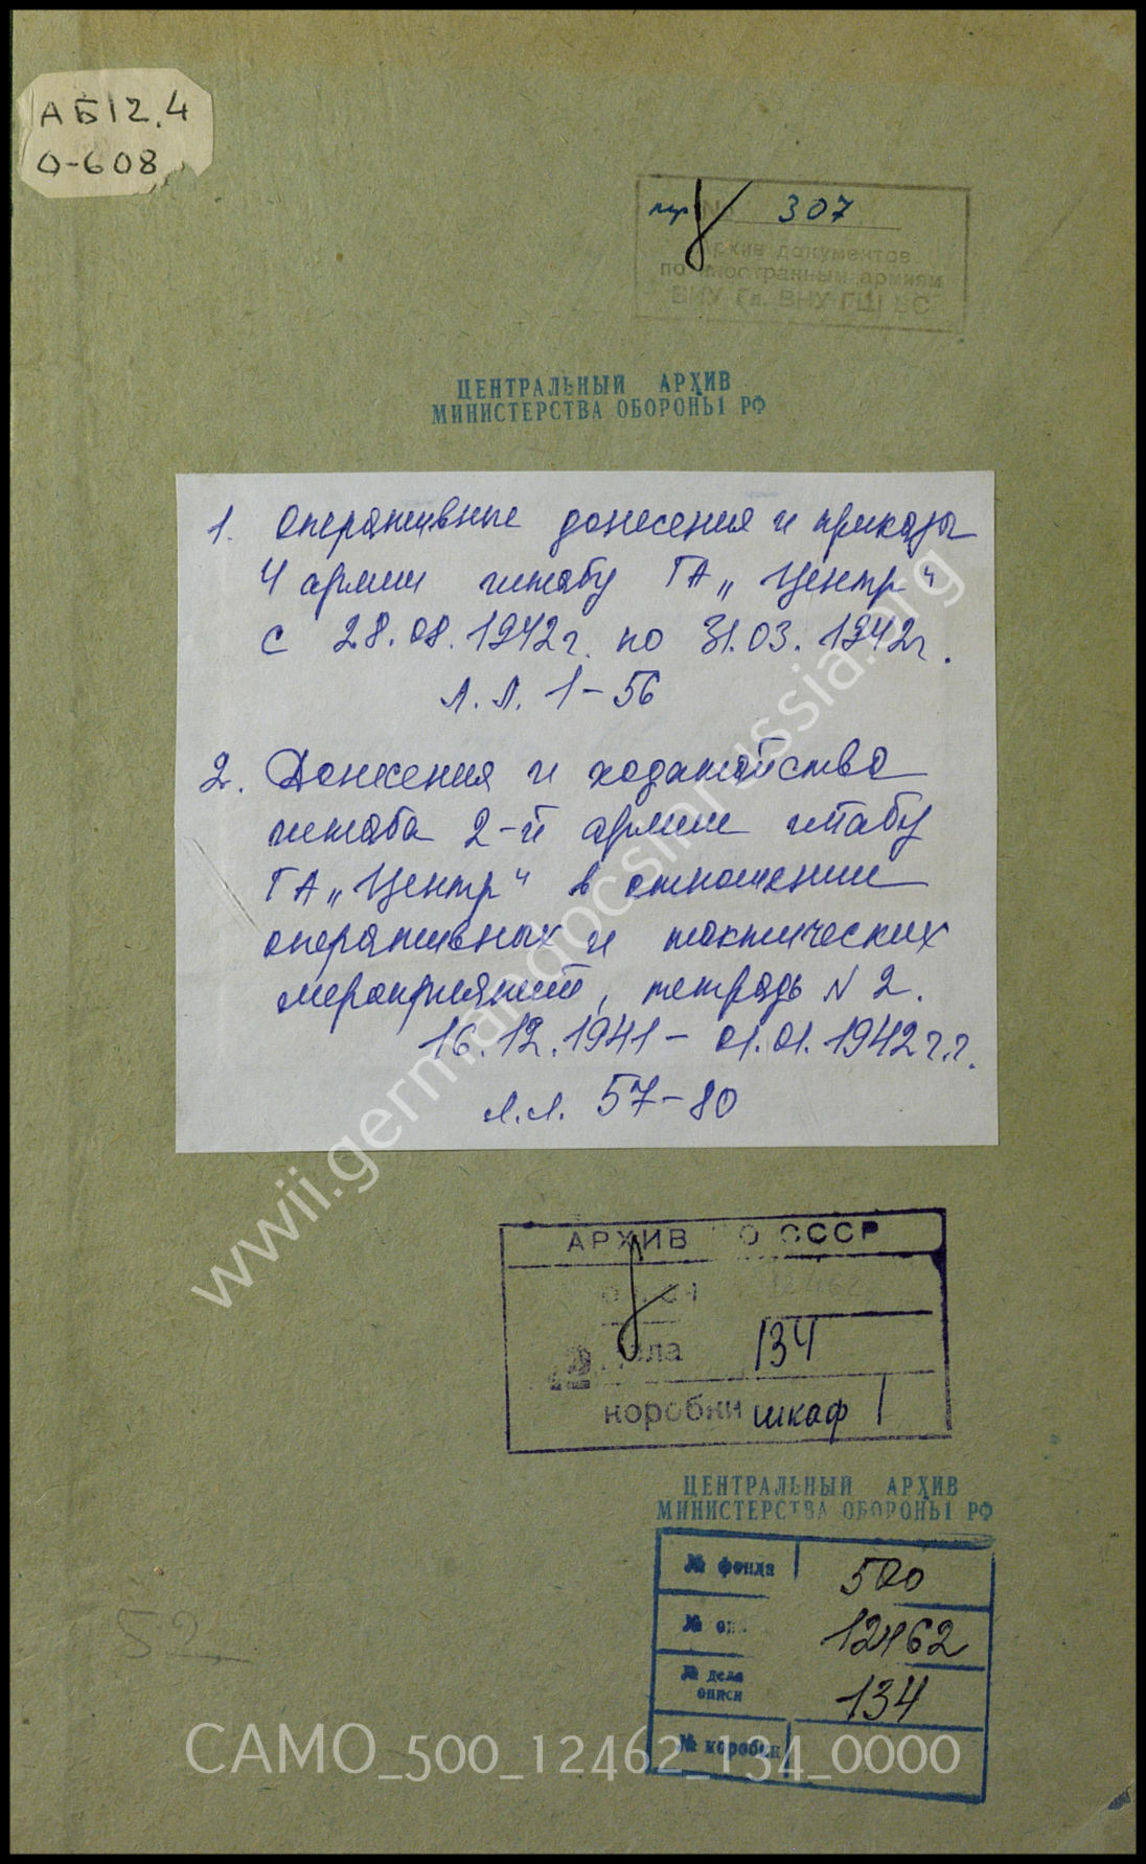 АБ12.4
О-608
пер № 307
Архив документов
по иностранным армиям
ВНУ Гл. ВНУ ГШ ВС
ЦЕНТРАЛЬНЫЙ АРХИВ
МИНИСТЕРСТВА ОБОРОНЫ РФ
1. Оперативные донесения и приказы
4 армии штабу ГА „Центр“
с 28.08.1942г. по 31.03.1942г.
л.л. 1-56
2. Донесения и ходатайства
штаба 2-й армии штабу
ГА „Центр“ в отношении
оперативных и тактических
мероприятий, тетрадь N 2.
16.12.1941 - 01.01.1942 г.г.
л.л. 57-80
www.germandocsinrussia.org
АРХИВ МО СССР
описи 12462
дела 134
коробки шкаф 1
ЦЕНТРАЛЬНЫЙ АРХИВ
МИНИСТЕРСТВА ОБОРОНЫ РФ
№ фонда 500
№ оп. 12462
№ дела описи 134
№ коробки
52
CAMO_500_12462_134_0000